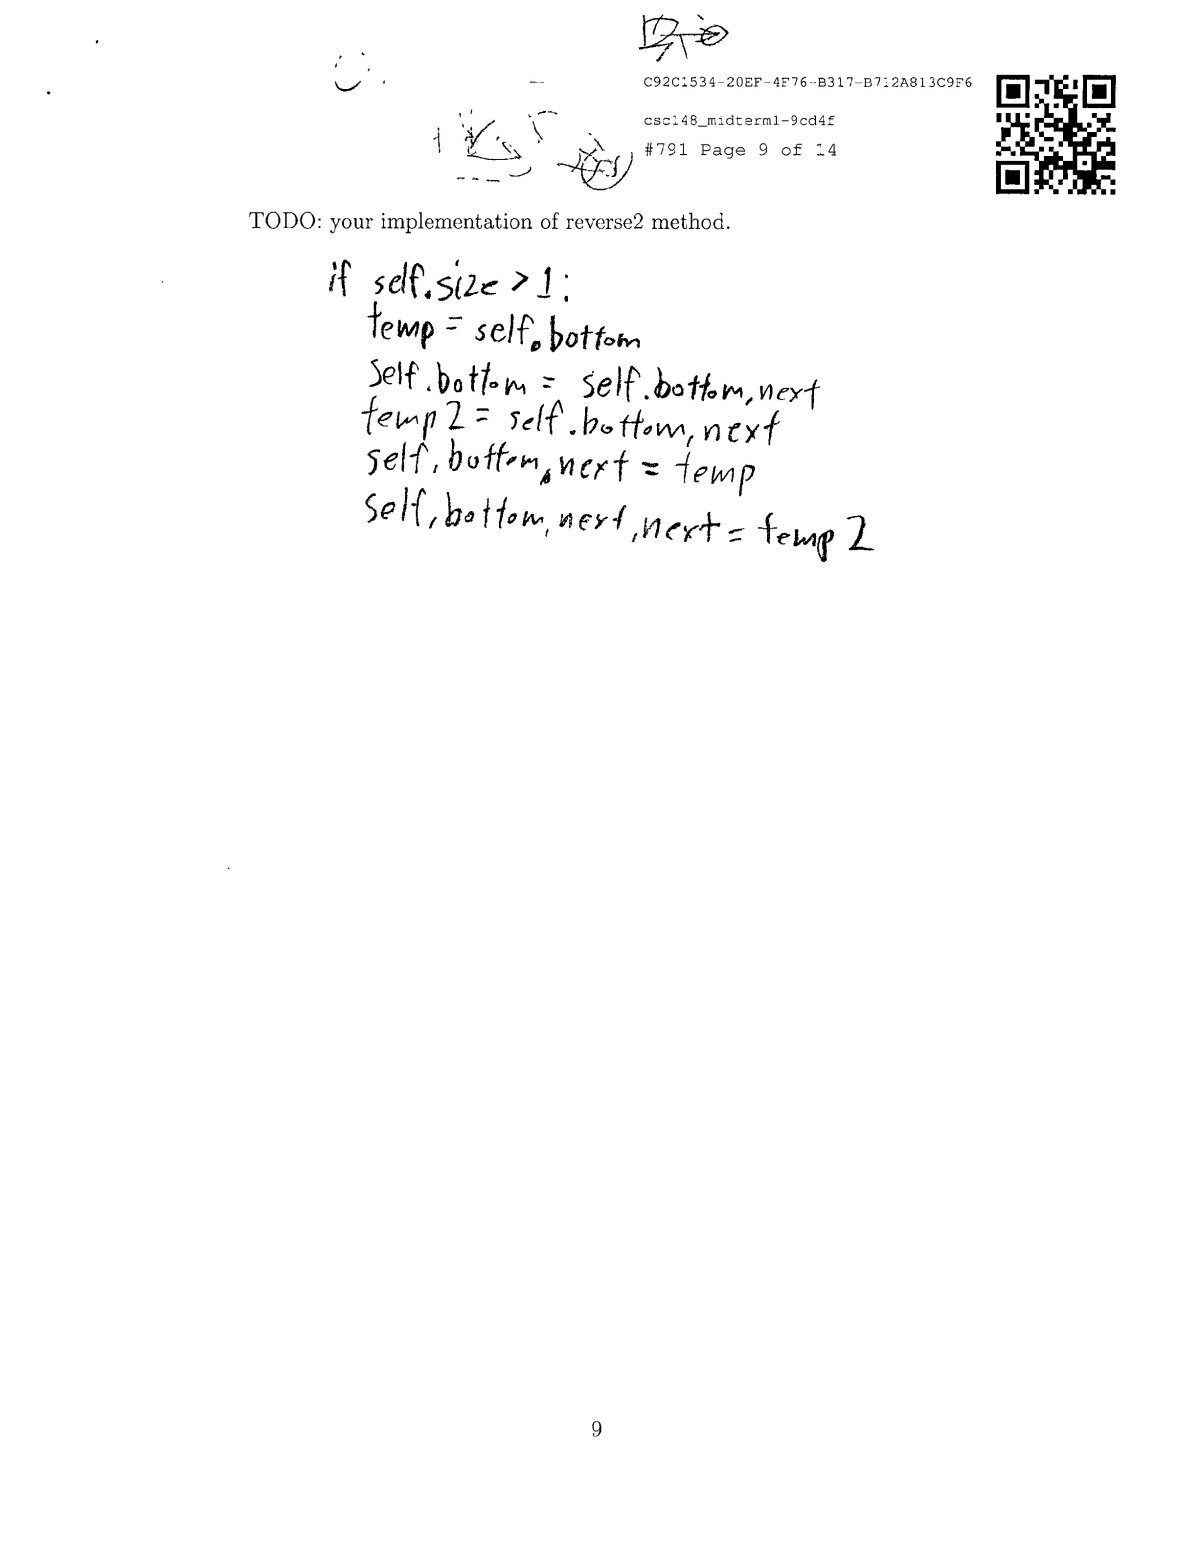 C92C1534-20EF-4F76-B317-B712A813C9F6
csc148_midterm1-9cd4f
#791 Page 9 of 14
TODO: your implementation of reverse2 method.
if self.size > 1:
temp = self.bottom
self.bottom = self.bottom.next
temp2 = self.bottom.next
self.bottom.next = temp
self.bottom.next.next = temp2
9